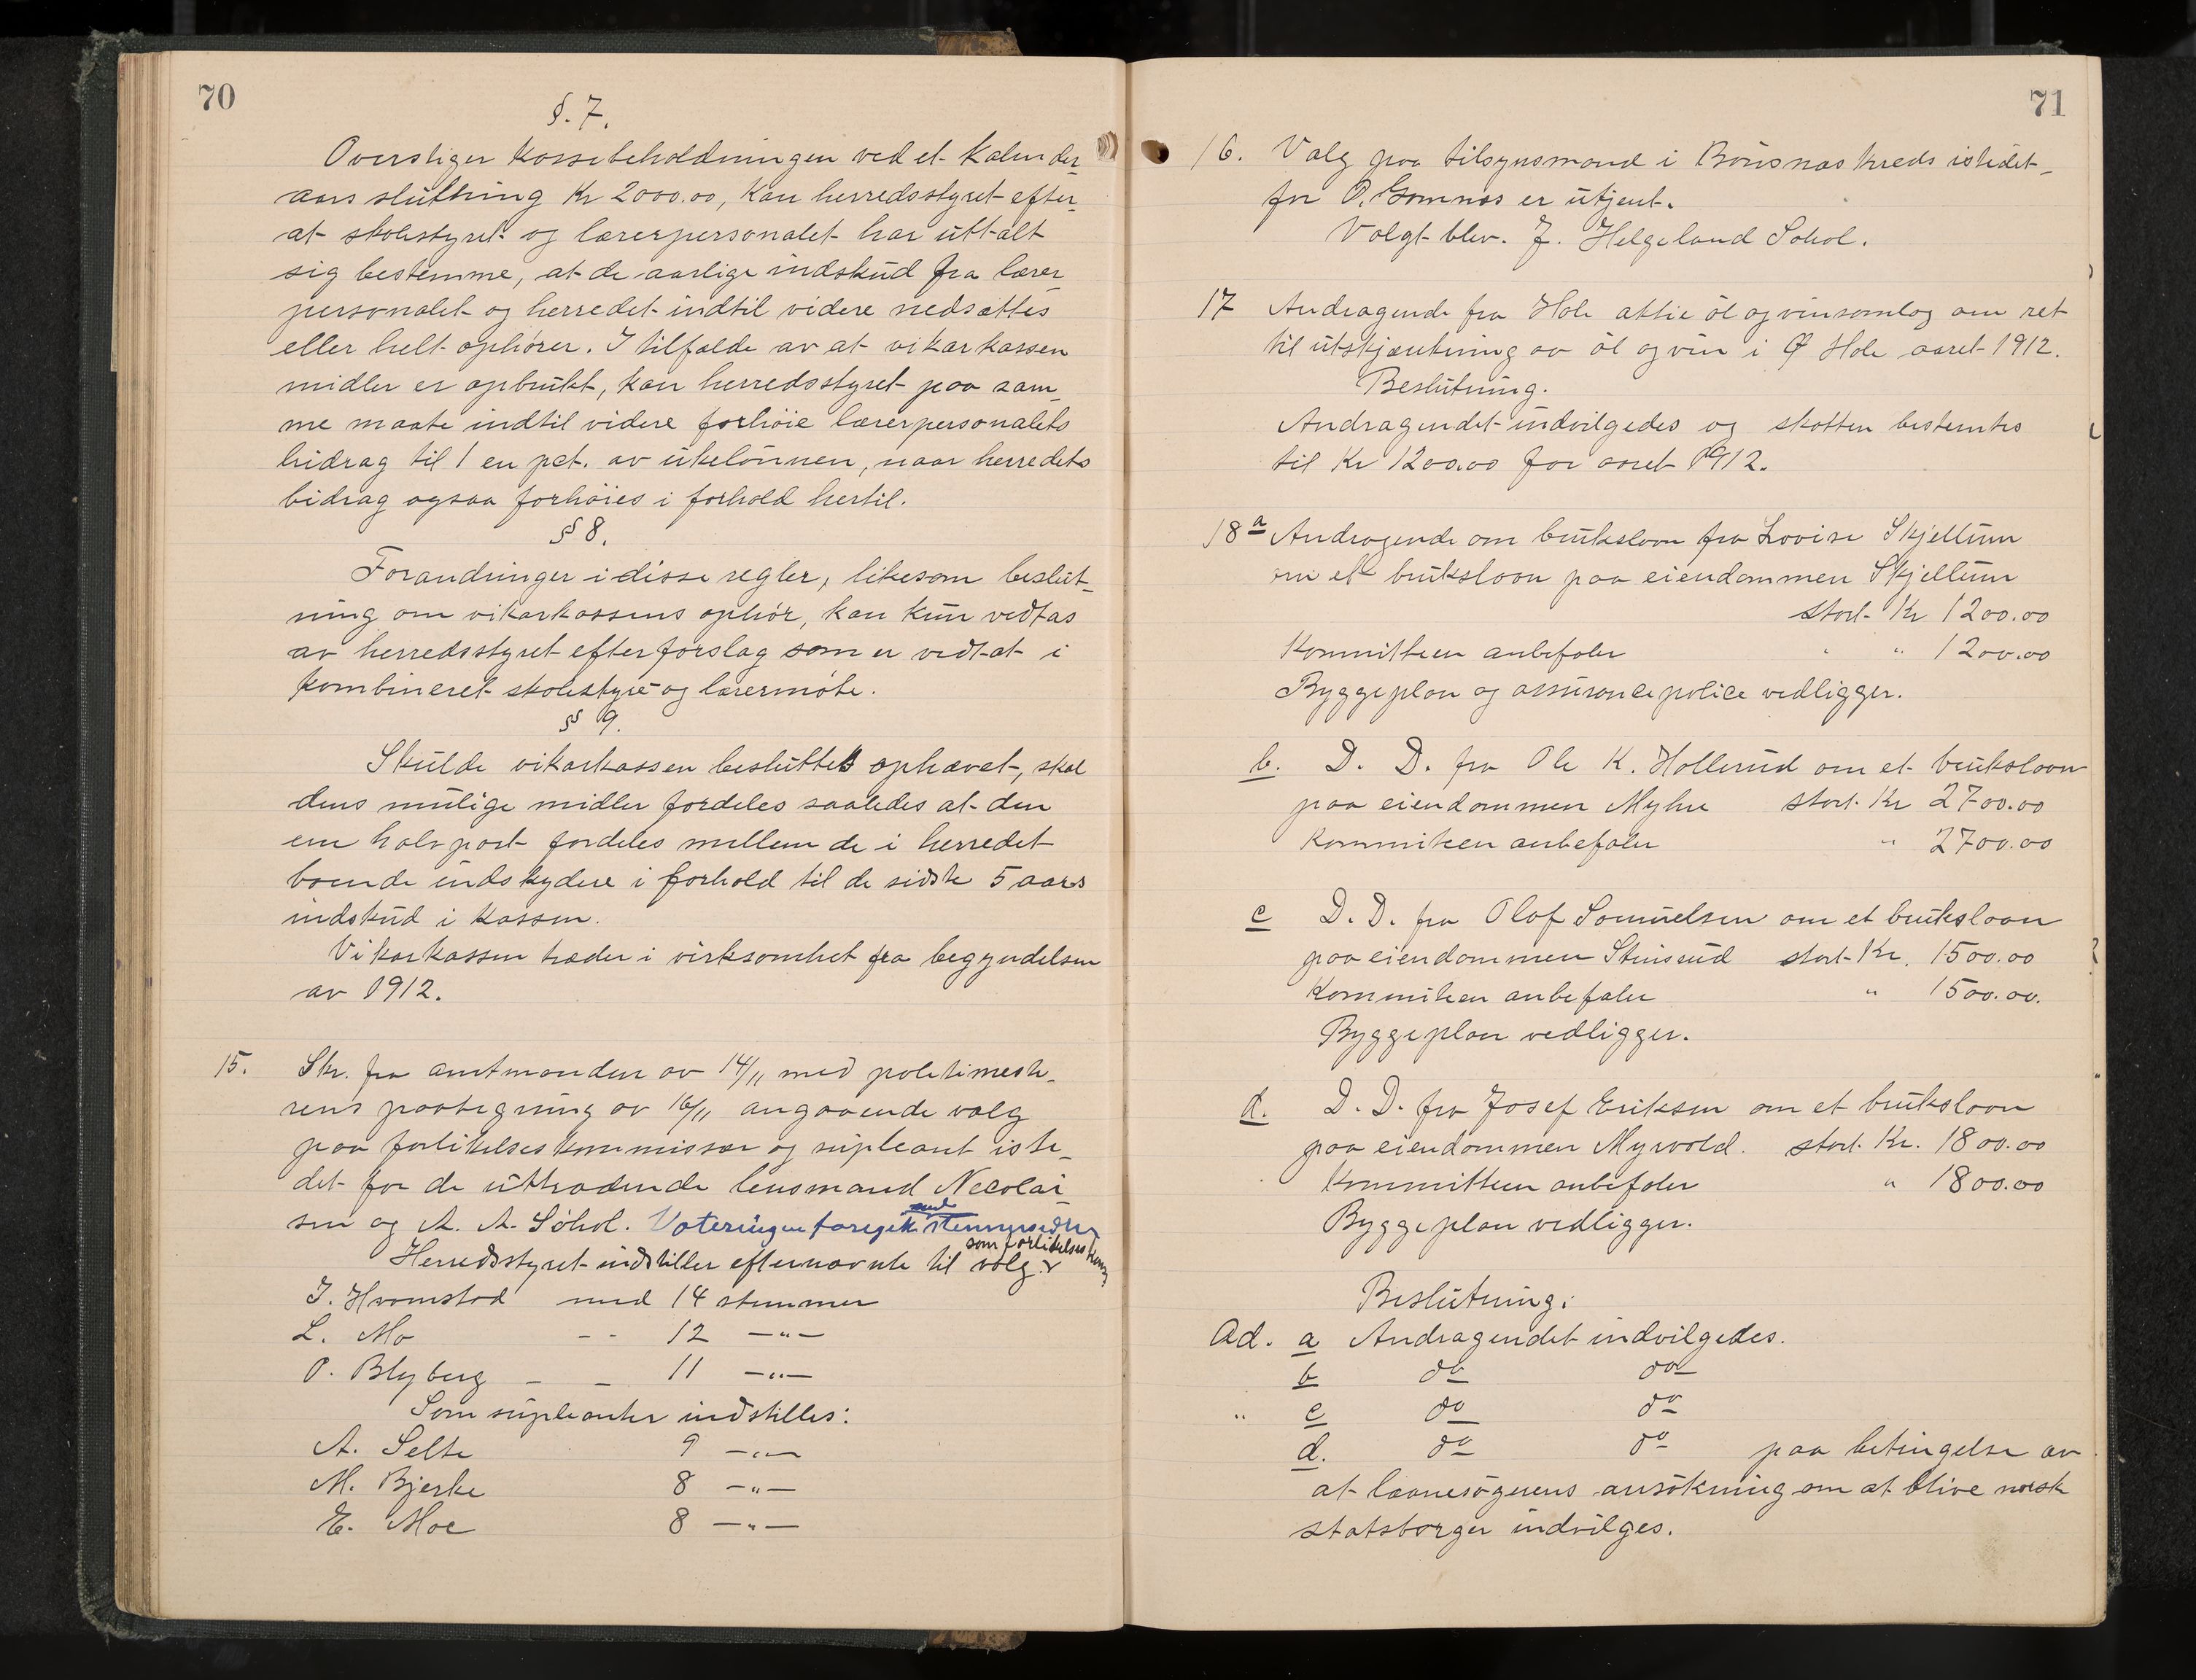 70
§. 7.
Overstiger kassebeholdningen ved et kalender-
aars slutning Kr 2000.00, kan herredsstyret efter-
at skolestyret og lærerpersonalet har uttalt
sig bestemme, at de aarlige indskud fra lærer-
personalet og herredet indtil videre nedsættes
eller helt ophører. I tilfælde av at vikarkassen
midler er opbrukt, kan herredsstyret paa sam-
me maate indtil videre forhöie lærerpersonalets
bidrag til 1 en pct. av ukelönnen, naar herredets
bidrag ogsaa forhöies i forhold hertil.
§ 8.
Forandringer i disse regler, likesom beslut-
ning om vikarkassens ophör, kan kun vedtas
av herredsstyret efter forslag som er vedtat i
kombineret skolestyre og lærermöte.
§ 9.
Skulde vikarkassen besluttes ophævet, skal
dens mulige midler fordeles saaledes at den
ene halvpart fordeles mellem de i herredet
boende indskydere i forhold til de sidste 5 aars
indskud i kassen.
Vikarkassen træder i virksomhet fra begyndelsen
av 1912.
15. Skr. fra amtmanden av 14/11 med politimeste-
rens paategning av 16/11 angaaende valg
paa forlikelseskommissær og supleant iste-
det for de uttrædende lensmand Necolai-
sen og A. A. Söhol. Voteringen foregik med stemmesedler
Herredsstyret indstiller efternævnte til valg som forlikelseskom.
I. Hvamstad med 14 stemmer
L. Mo - - 12 —"—
P. Blyberg - - 11 —"—
Som supleanter indstilles:
A. Selte 9 —"—
M. Bjerke 8 —"—
E. Moe 8 —"—
71
16. Valg paa tilsynsmand i Bönsnæs kreds istedet-
for O. Gomnæs er utjent.
Valgt blev. J. Helgeland Sohol.
17 Andragende fra Hole aktie öl og vinsamlag om ret
til utskjænkning av öl og vin i Ø Hole aaret 1912.
Beslutning.
Andragendet indvilgedes og skatten bestemtes
til Kr 1200.00 for aaret 1912.
18 a Andragende om brukslaan fra Lovise Skjellum
om et brukslaan paa eiendommen Skjellum
stort Kr 1200.00
Kommitteen anbefaler " " 1200.00
Byggeplan og assurancepolice vedligger.
b. D. D. fra Ole K. Hollerud om et brukslaan
paa eiendommen Myhre stort Kr 2700.00
Kommiteen anbefaler " 2700.00
c D. D. fra Olaf Samuelsen om et brukslaan
paa eiendommen Stensrud stort Kr. 1500.00
Kommiteen anbefaler " 1500.00.
Byggeplan vedligger.
d. D. D. fra Josef Eriksen om et brukslaan
paa eiendommen Myrvold. stort Kr. 1800.00
Kommitteen anbefaler " 1800.00
Byggeplan vedligger.
Beslutning:
Ad. a Andragendet indvilgedes.
b do do
" c do do
d. do do paa betingelse av
at laanesögerens ansökning om at blive norsk
statsborger indvilges.